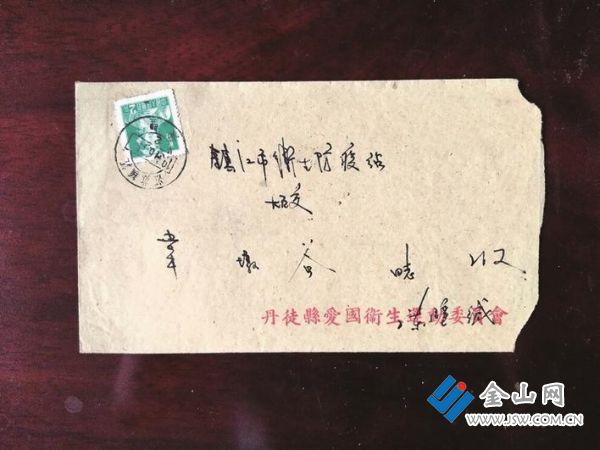 镇江市衛生防疫站
转交
章墩谷 同志 收
丹徒縣愛國衛生運動委員會
缄
金山网
WWW.JSW.COM.CN